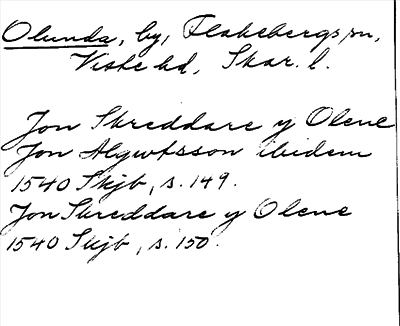 Olunda, by, Flakebergs sn,
Viste hd, Skar. l.
Jon Skreddare y Olene
Jon Algwtsson ibidem
1540 Skjb, s. 149.
Jon Skreddare y Olene
1540 Skjb, s. 150.